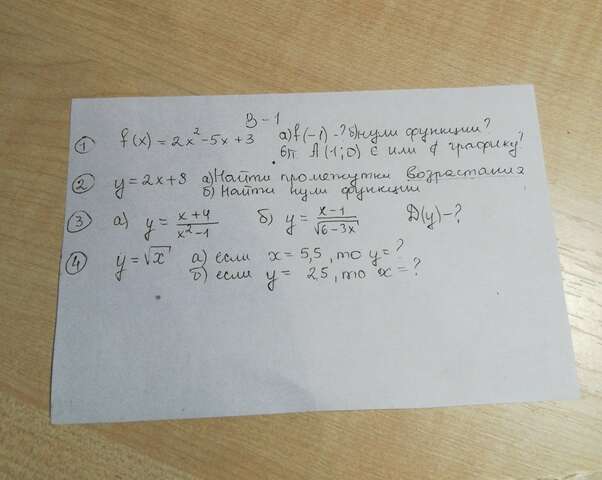 В-1
① f(x) = 2x²-5x+3 а) f(-1) -? б) нули функции?
в) т. A(1;0) ∈ или ∉ графику?
② y = 2x+8 а) Найти промежутки возрастания
б) Найти нули функции
③ а) y = (x+4)/(x²-1) б) y = (x-1)/√(6-3x) D(y)-?
④ y = √x а) если x = 5,5, то y = ?
б) если y = 2,5, то x = ?